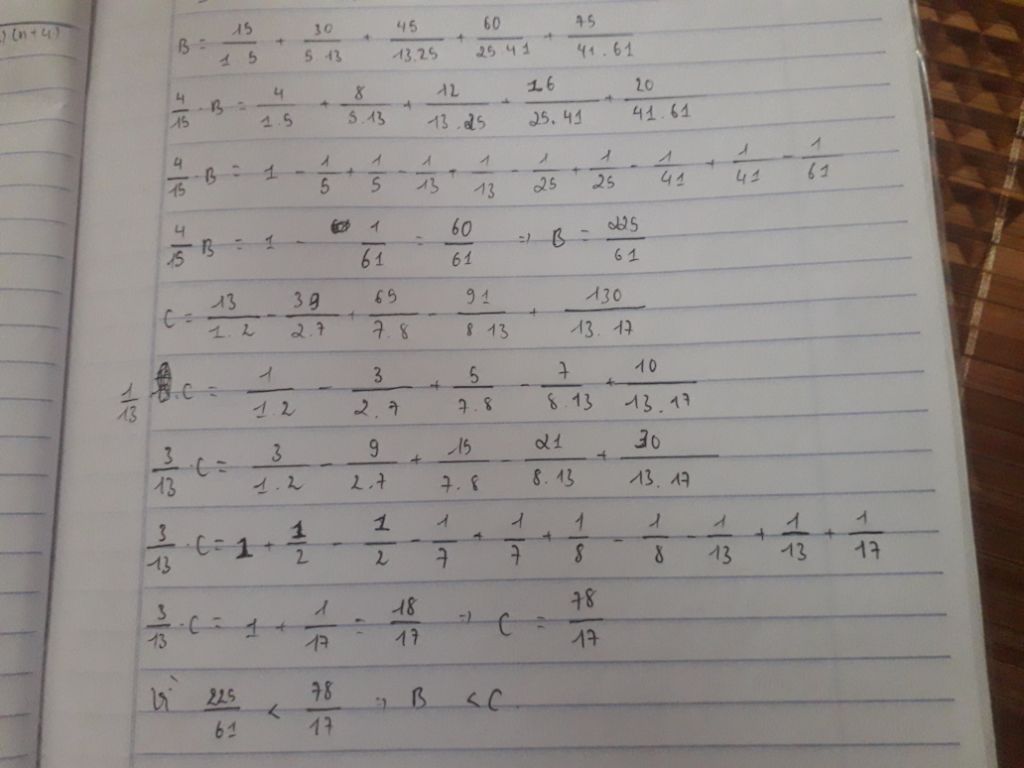 ) (n+4)
B = 15/1.5 + 30/5.13 + 45/13.25 + 60/25.41 + 75/41.61
4/15 . B = 4/1.5 + 8/5.13 + 12/13.25 + 16/25.41 + 20/41.61
4/15 . B = 1 - 1/5 + 1/5 - 1/13 + 1/13 - 1/25 + 1/25 - 1/41 + 1/41 - 1/61
4/15 B = 1 - 1/61 = 60/61 => B = 225/61
C = 13/1.2 - 39/2.7 + 65/7.8 - 91/8.13 + 130/13.17
1/13 . C = 1/1.2 - 3/2.7 + 5/7.8 - 7/8.13 + 10/13.17
3/13 . C = 3/1.2 - 9/2.7 + 15/7.8 - 21/8.13 + 30/13.17
3/13 . C = 1 + 1/2 - 1/2 - 1/7 + 1/7 + 1/8 - 1/8 - 1/13 + 1/13 + 1/17
3/13 . C = 1 + 1/17 = 18/17 => C = 78/17
Vì 225/61 < 78/17 => B < C.